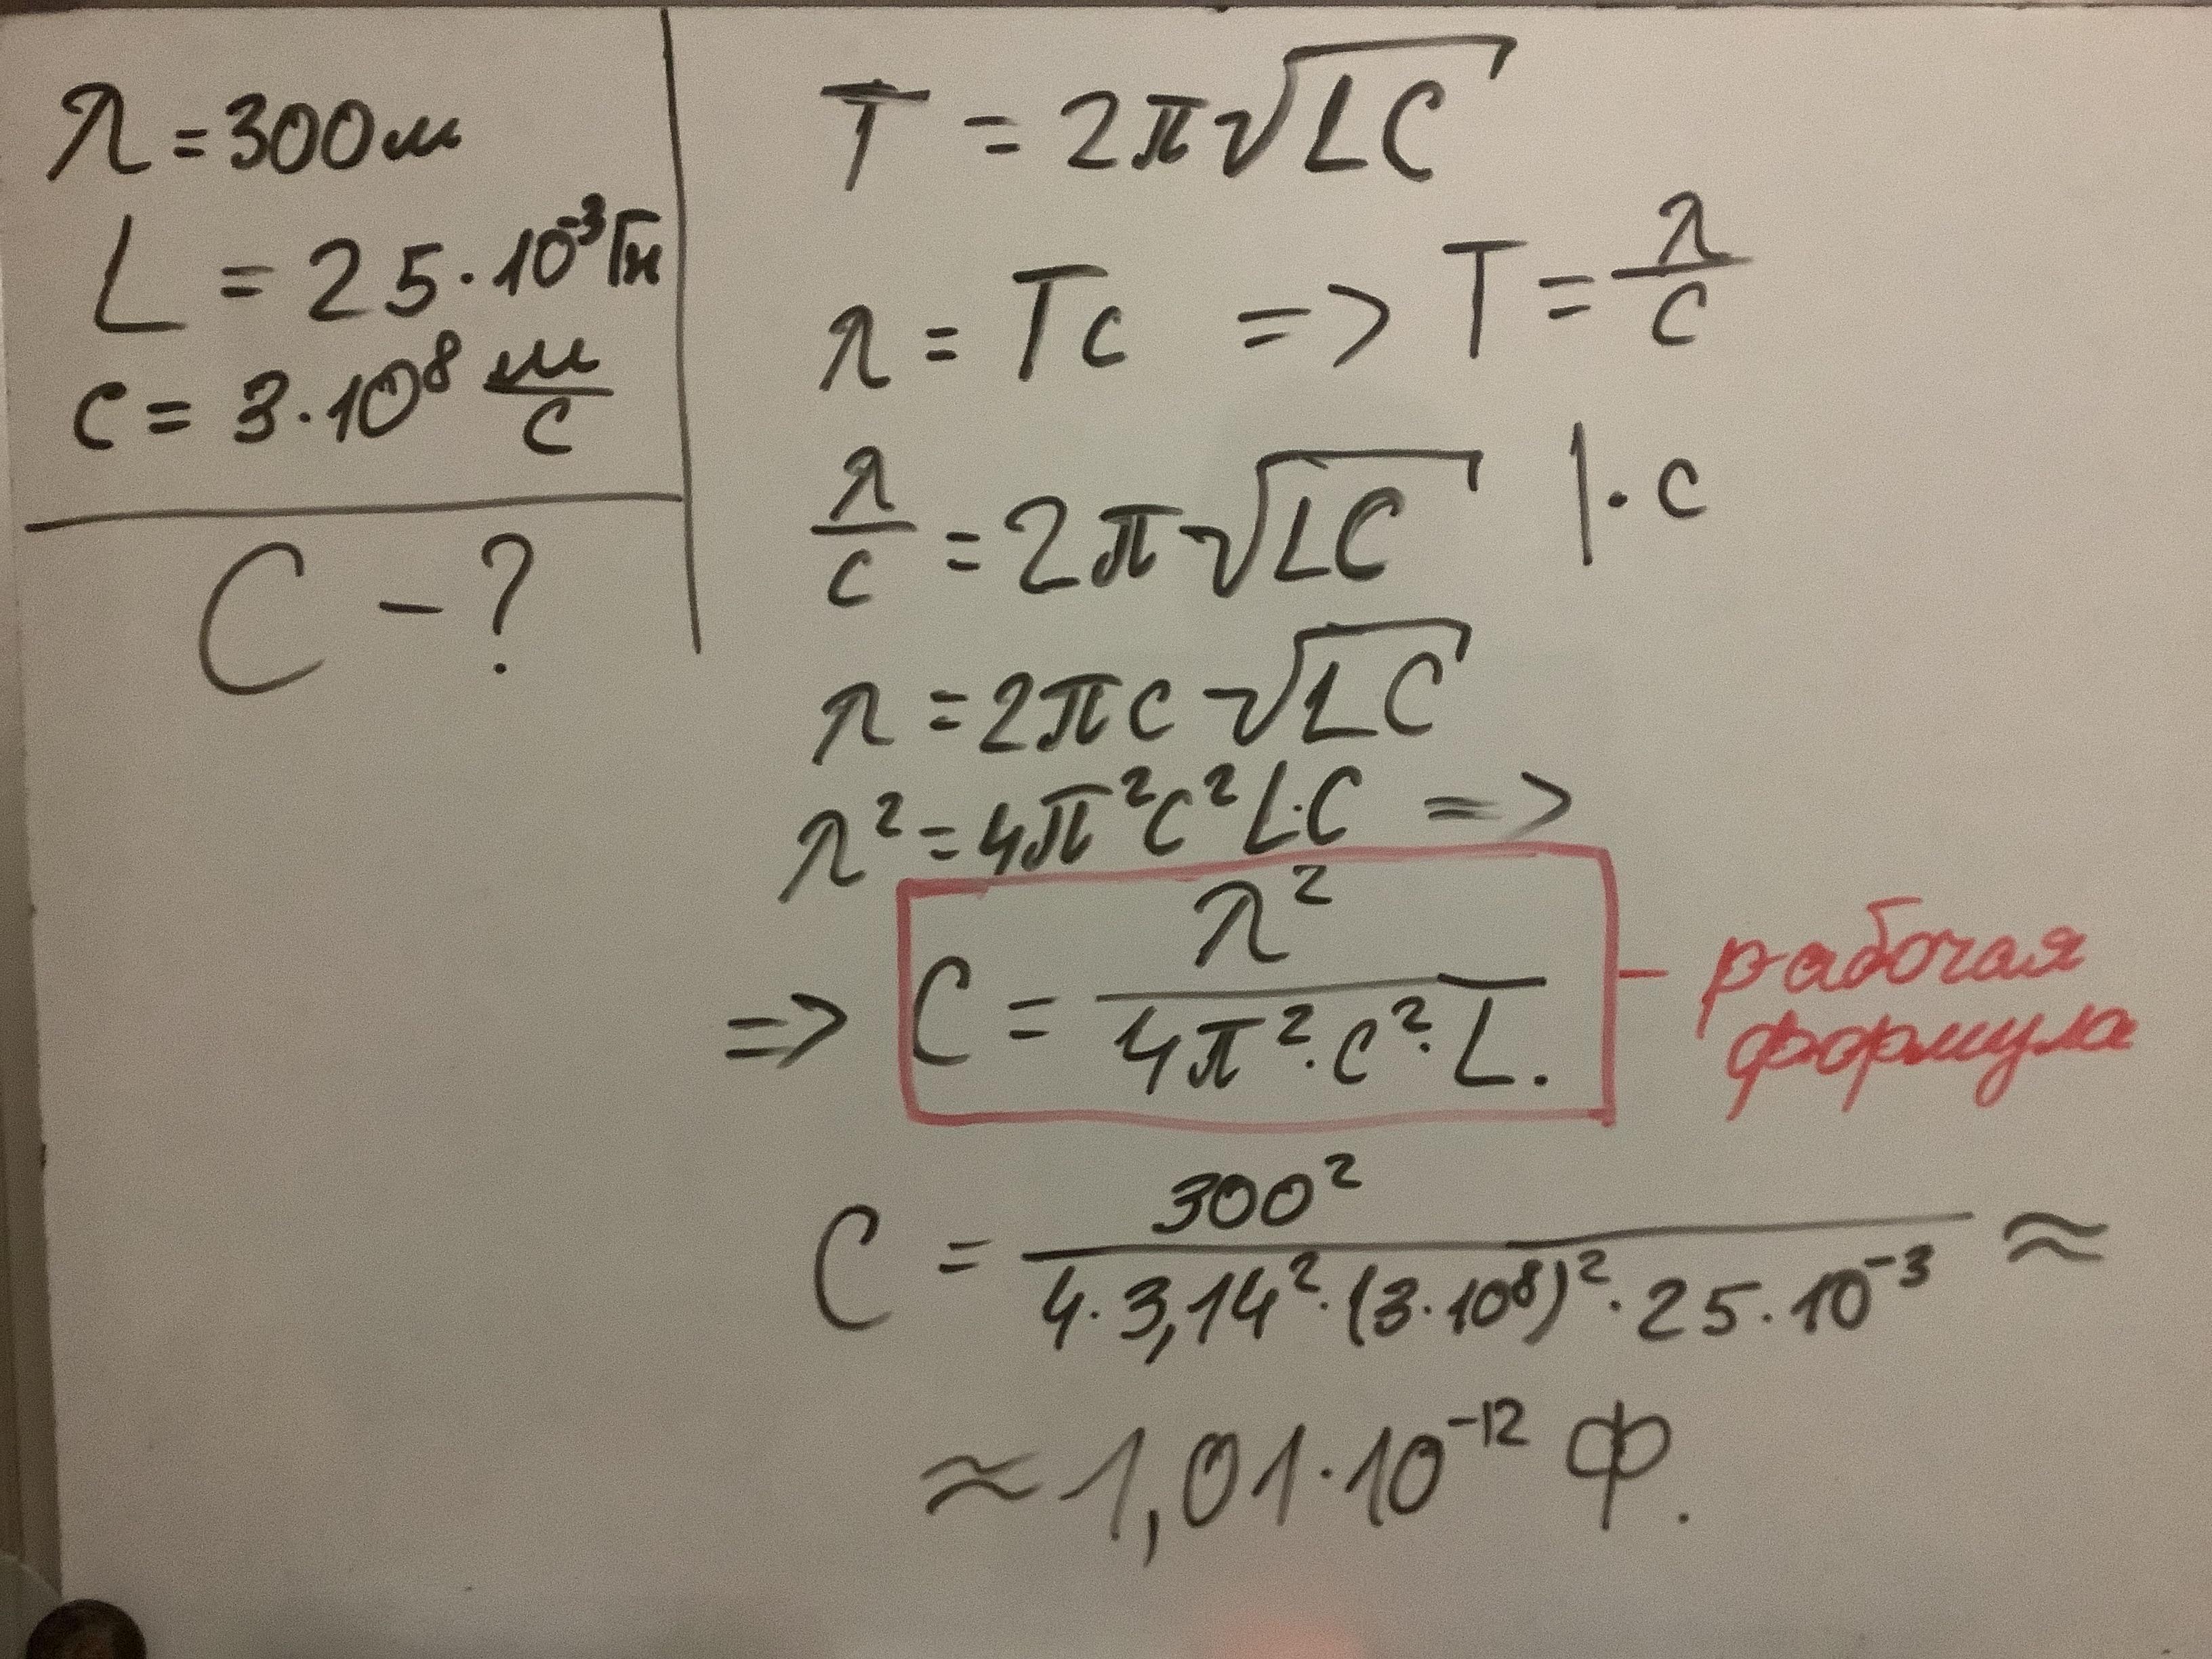 λ = 300 м
L = 25 · 10⁻³ Гн
c = 3 · 10⁸ м/с
C – ?
T = 2π√LC
λ = Tc => T = λ/c
λ/c = 2π√LC | · c
λ = 2πc√LC
λ² = 4π²c²L·C =>
=> C = λ²/(4π² · c² · L.) – рабочая
формула
C = 300²/(4 · 3,14² · (3 · 10⁸)² · 25 · 10⁻³) ≈
≈ 1,01 · 10⁻¹² Ф.